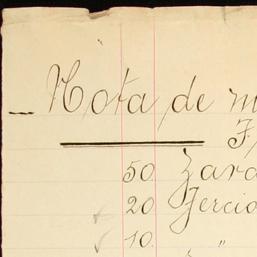 Nota de m
F.
50 Zara
20 Jercio
10 "